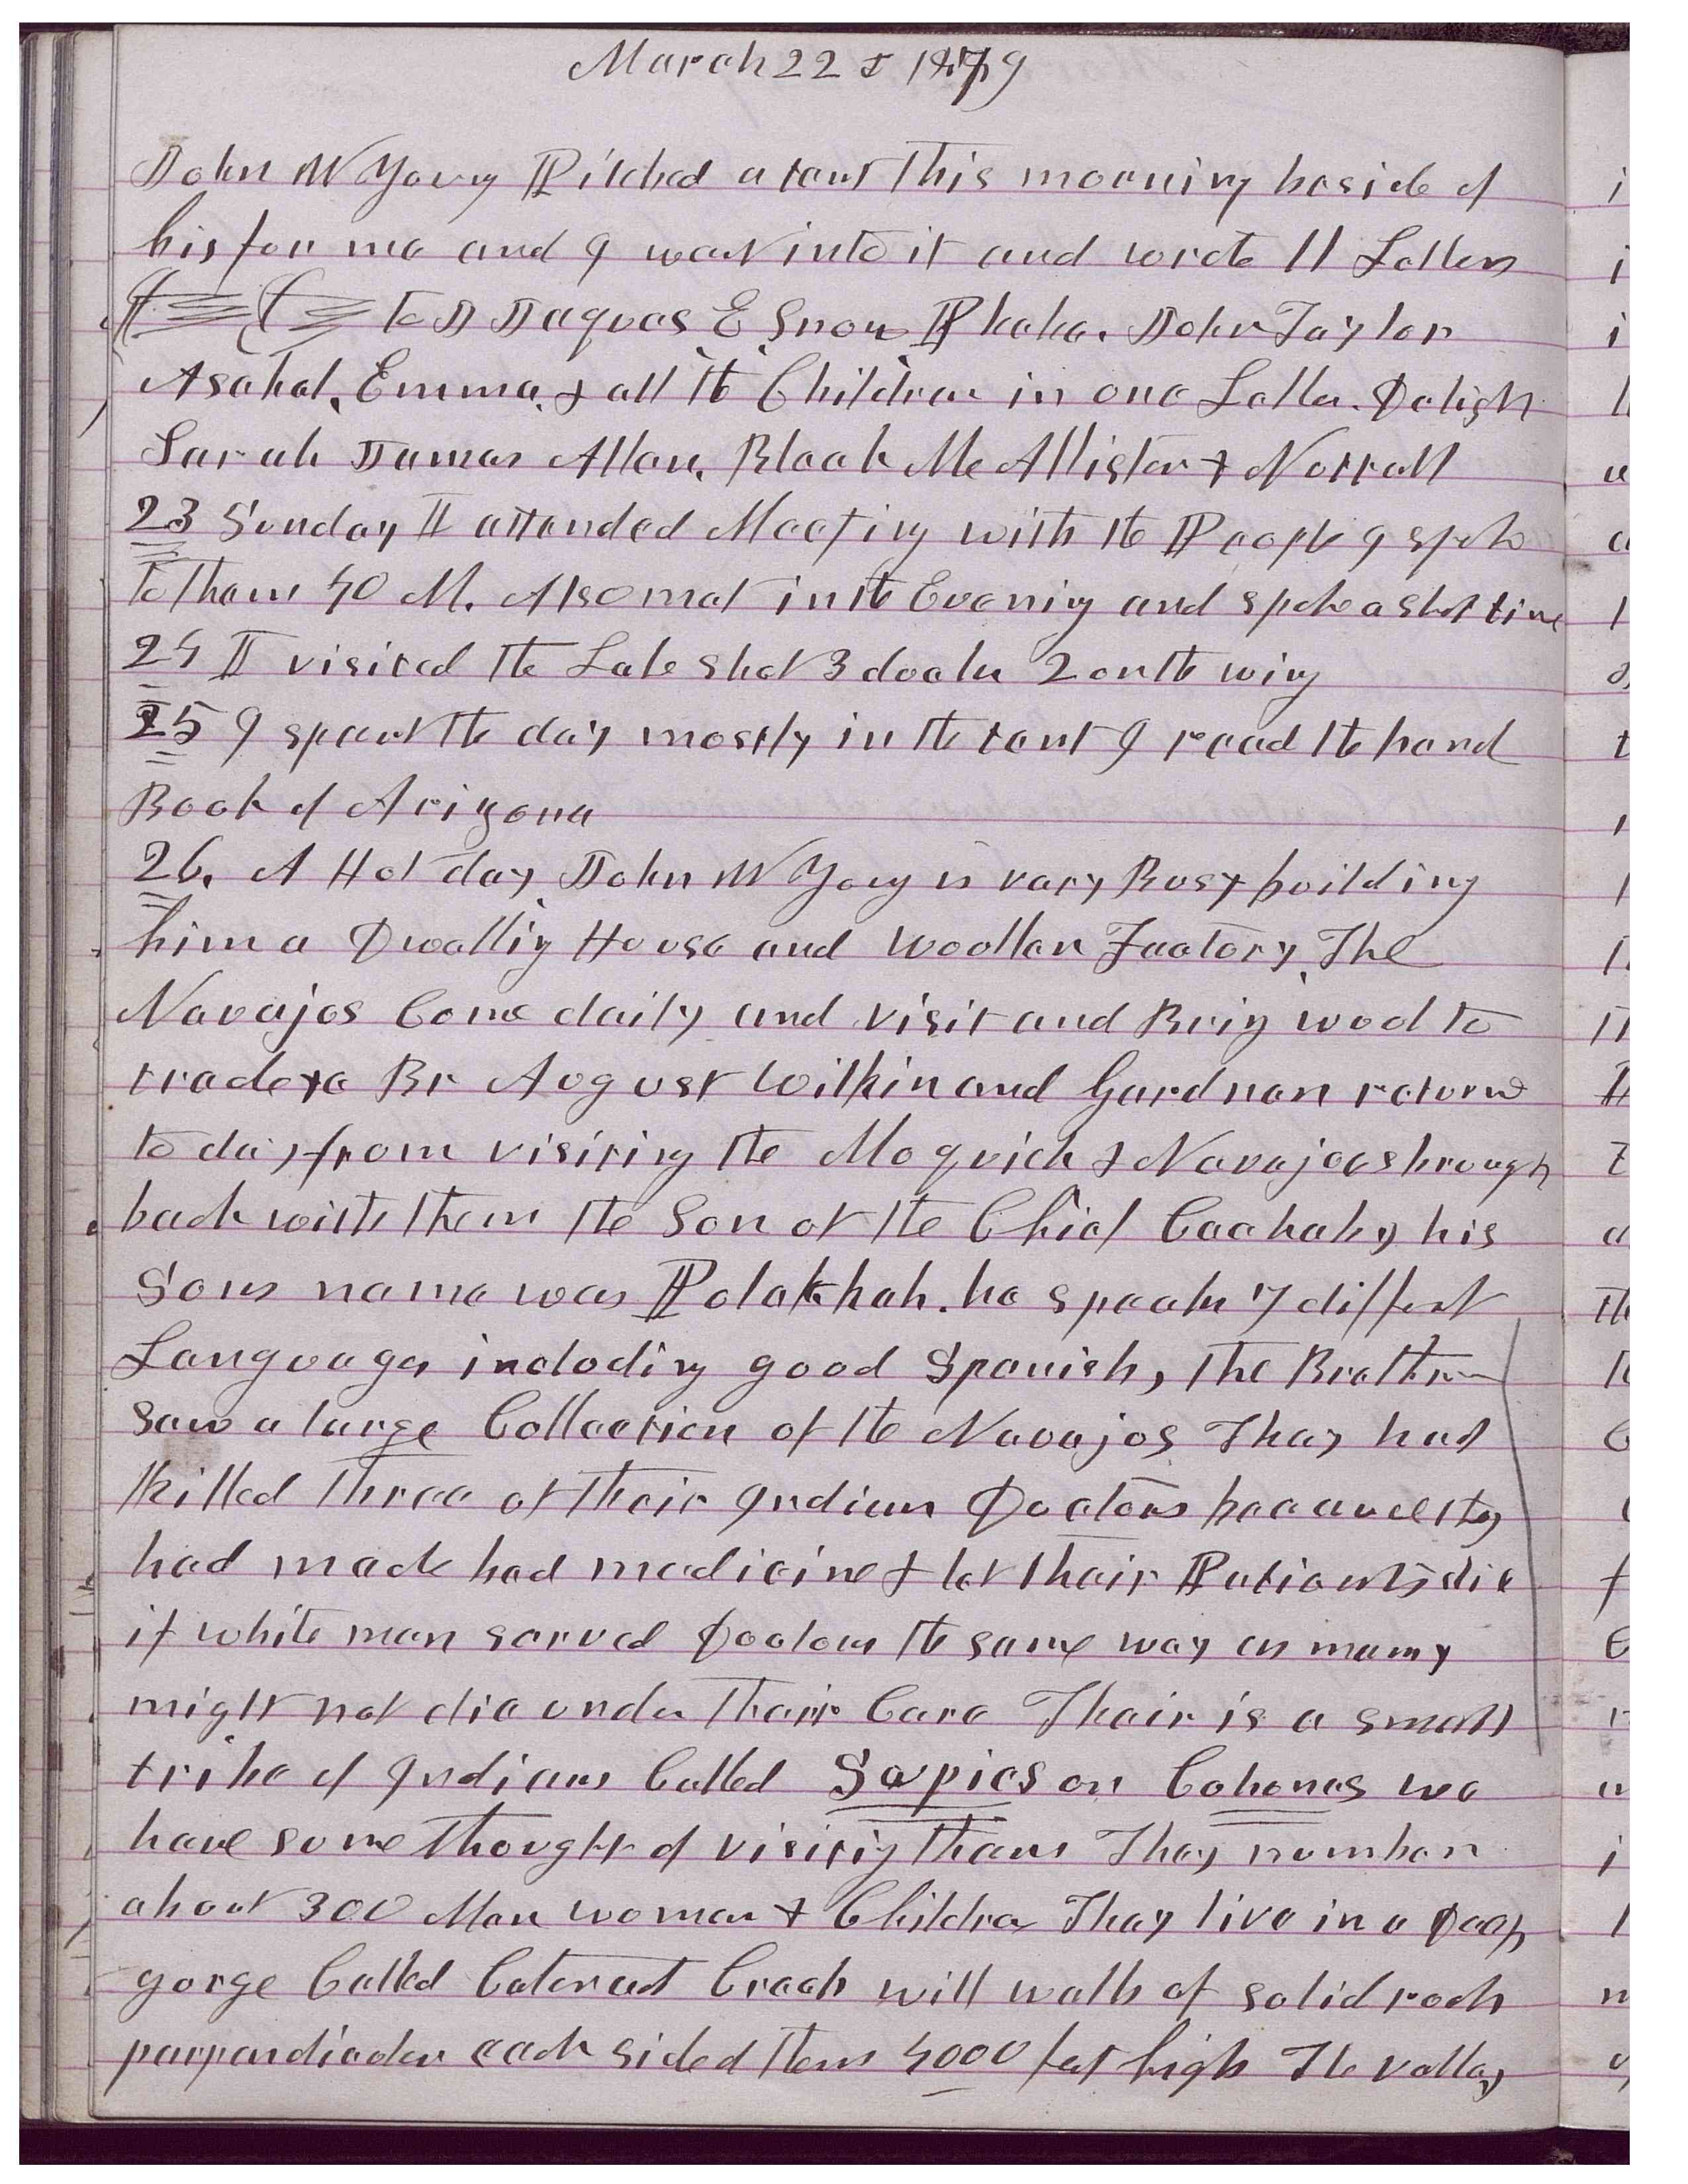 March 22d 1879
John W Young Pitched a tent this morning beside of
his for me and I went into it and wrote 11 Letters
to J Jaques E Snow Phebe. John Taylor
Asahel, Emma, & all the Children in one Letter. Delight
Sarah James Allen, Bleak McAllister & Norrall
23 Sunday I attended Meeting with the People I spoke
to them 40 M. Also met in the Evening and spoke a short time
24 I visited the Lake shot 3 ducks 2 on the wing
25 I spent the day mostly in the tent I read the hand
Book of Arizona
26. A Hot day John W Young is very Busy building
him a Dwelling House and Woollen Factory, The
Navajos Come daily and visit and Bring wool to
trade &c Br August Wilkin and Gardnan returnd
to day from visiting the Moquich & Navajoes brough
back with them the Son of the Chief
Sons name was he speaks 7 diffent
Languages including good Spanish, The Brethren
saw a large Collection of the Navajos They had
killed three of their Indian Doctors because they
had made bad medicine & let their Patients die
if white men served Doctors the same way as many
might not die under their Care Their is a small
tribe of Indians Called Supies or Cohones we
have some thought of visiting them They number
about 300 Men women & Childrn They live in a Deep
gorge Called Cateract Creek will walls of solid rock
perpendicular each side of them 4000 feet high The valley